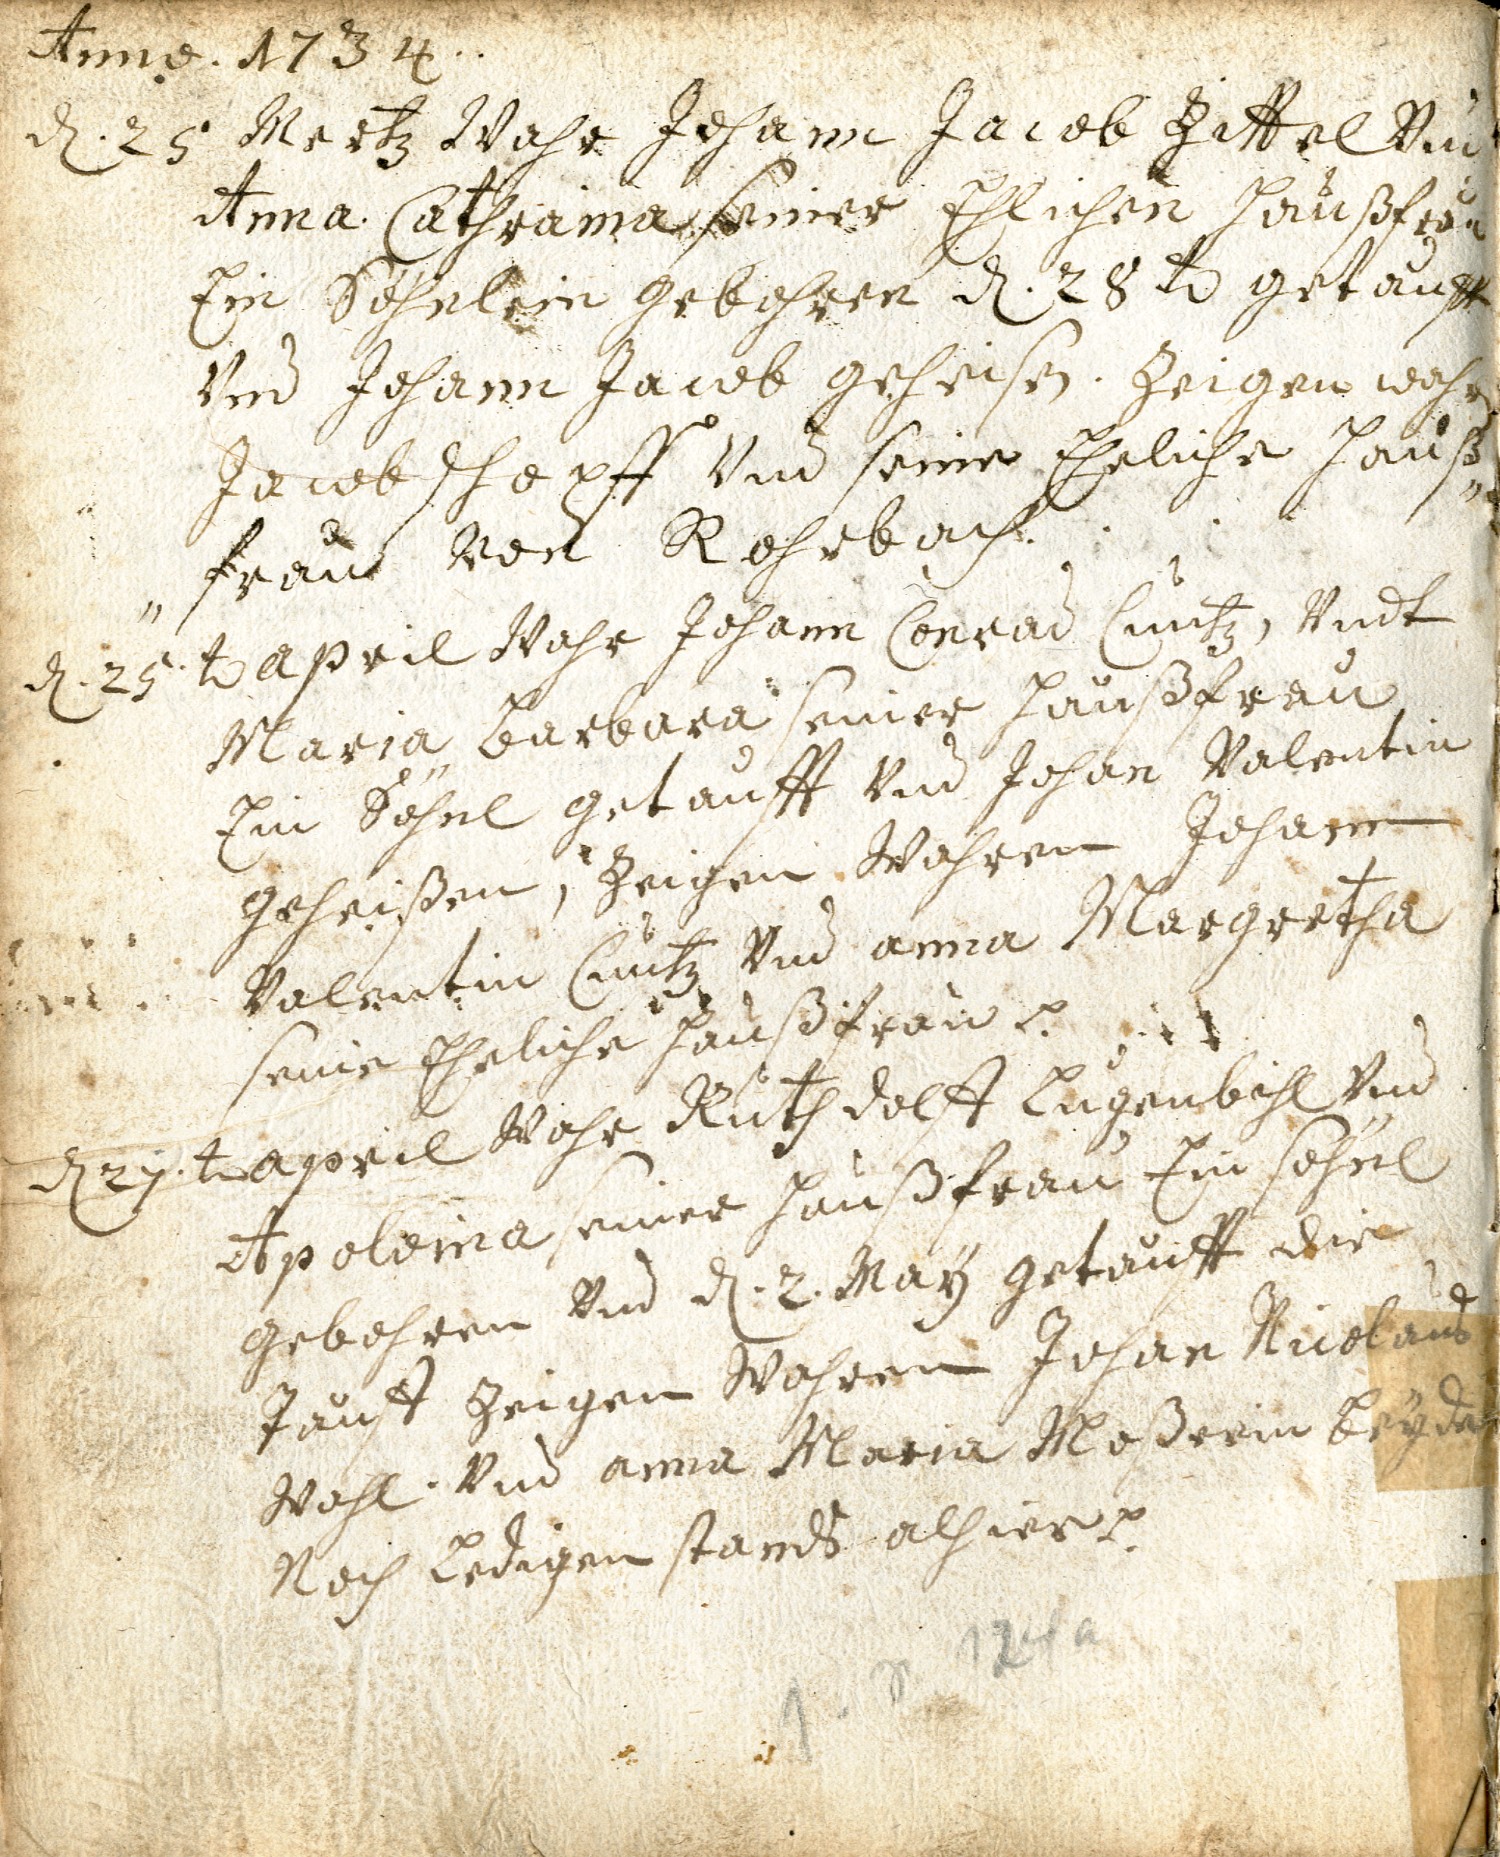 Anno. 1734.
d. 25 Mertz Wahr Johann Jacob Zittel Vnd
Anna Cathraina seiner Ehlichen Haußfrau
Ein Söhnlein gebohren d. 28 t getaufft
Vnd Johann Jacob geheisen. Zeigen wahr
Jacob Schopff Vnd seine Eheliche Hauß„
„frau von Rohrbach
d. 25. t april Wahr Johann Conrad Cuntz, Vndt
Maria Barbara seiner Haußfrau
Ein Söhnl getaufft Vnd Johan Valentin
geheißen, Zeigen Wahren Johann
Valentin Cuntz Vnd anna Margretha
seine Eheliche Haußfrau
d 27. t april Wahr Ruthdolff Lugenbihl Vnd
Apolonia seiner Haußfrau Ein söhnl
gebohren Vnd d. 2. May getaufft die
Tauff Zeigen Wahren Johan Nicolaus
Wohl. Vnd anna Maria Moßerin beyde
Noch Ledigen stands alhier